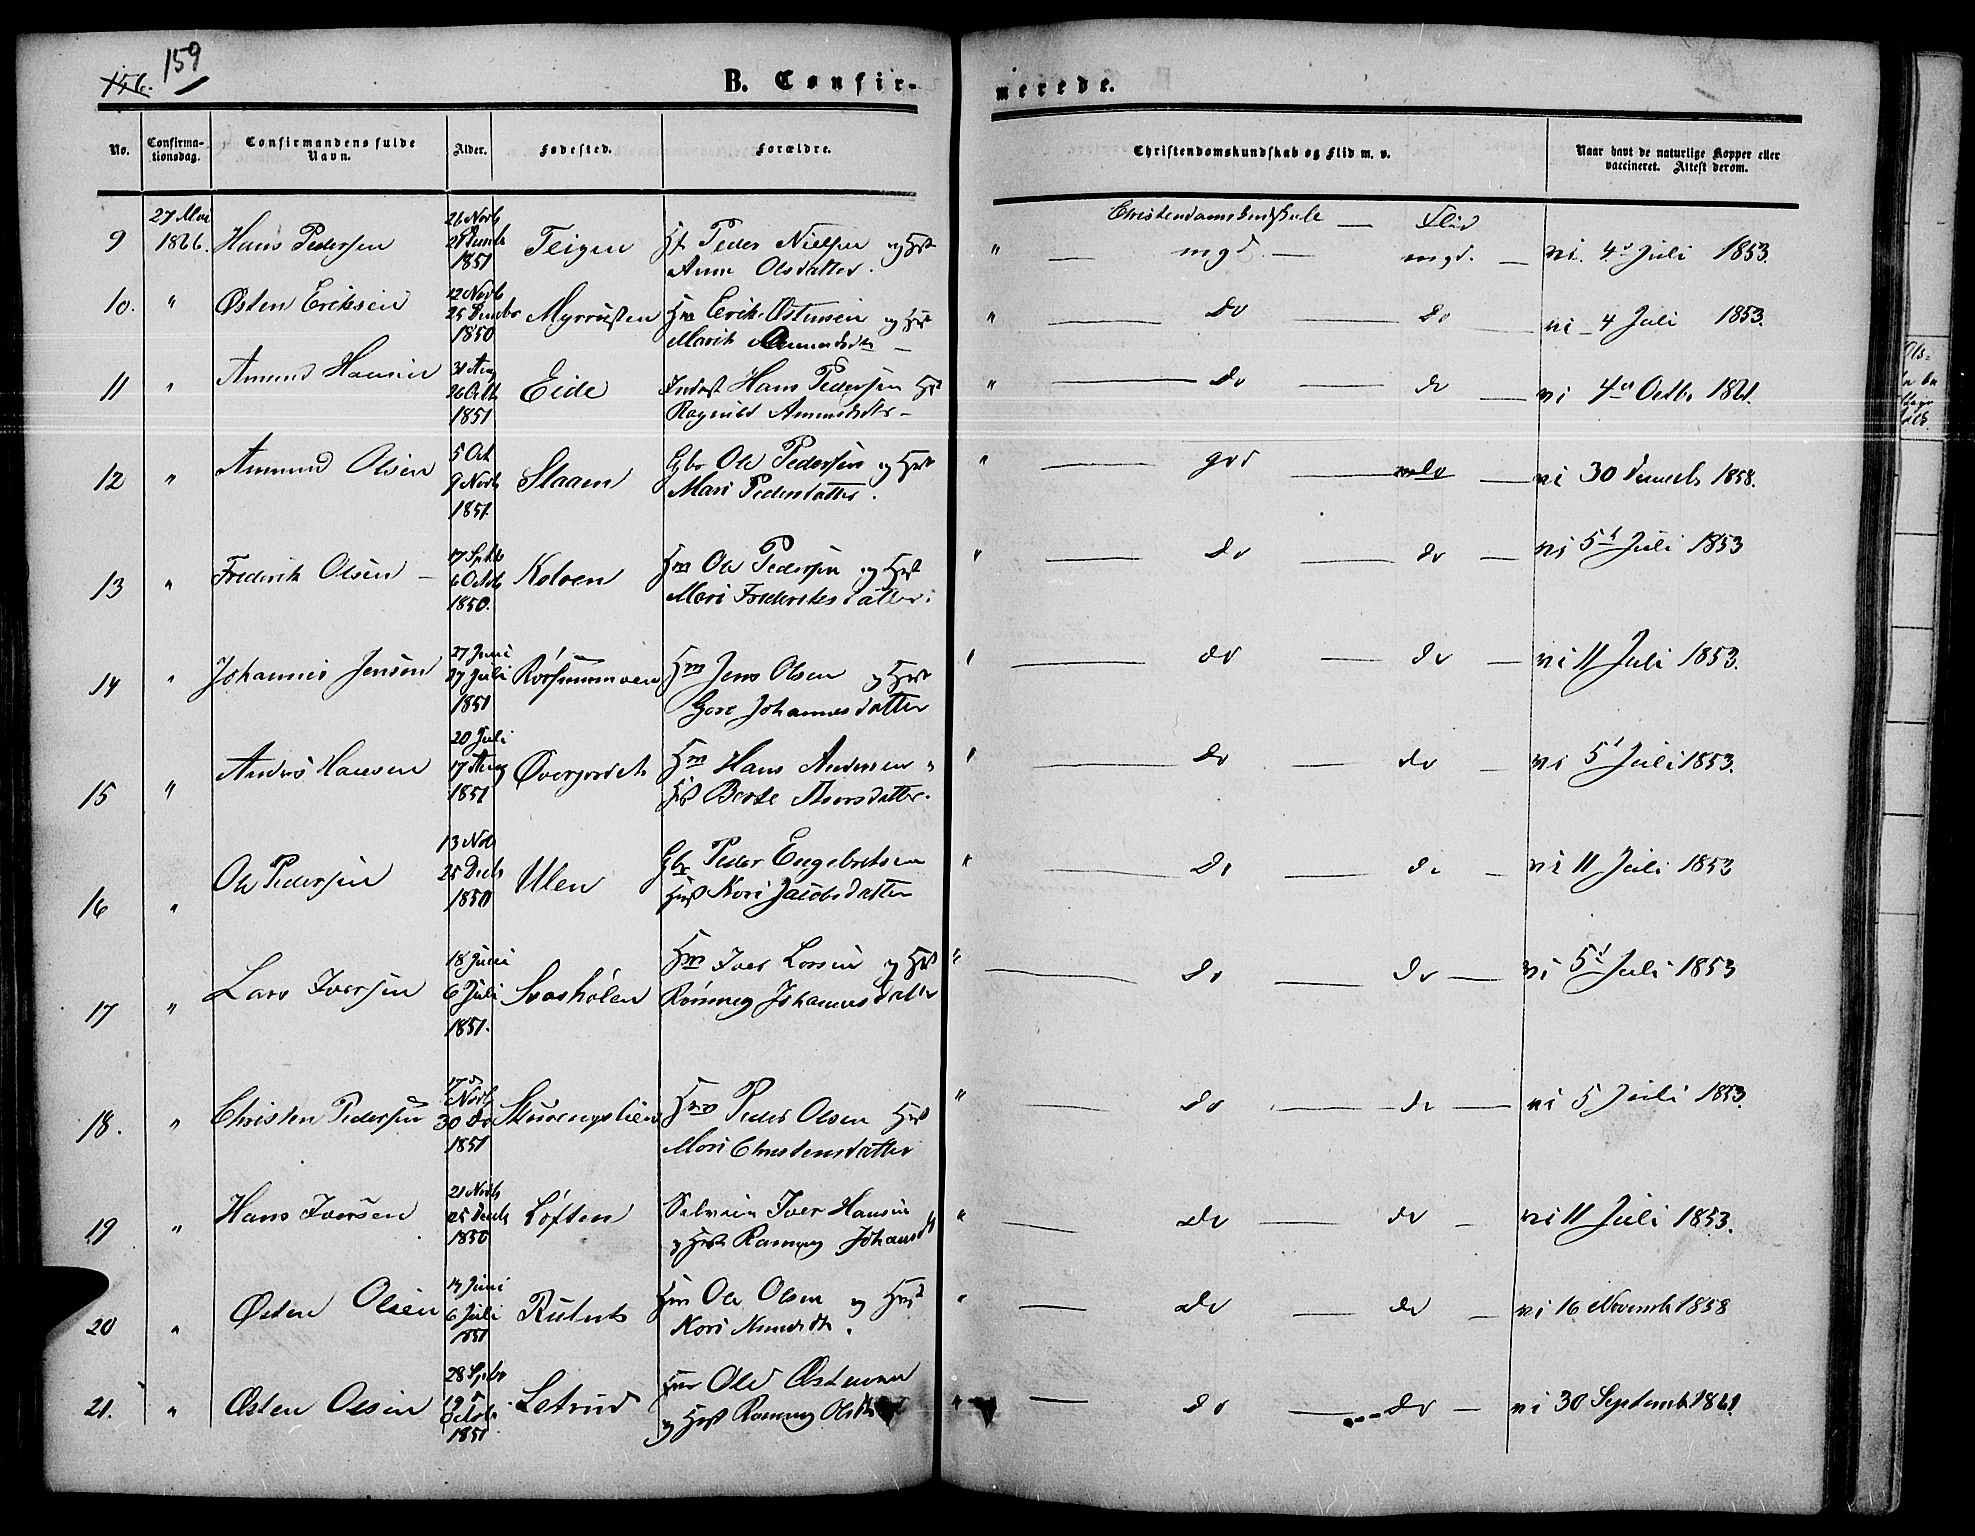 156. 159
B. Confir-
merede.
No.
Confirma-
tionsdag.
Confirmandens fulde
Navn.
Alder.
Fødested.
Forældre.
Christendomskundskab og Flid m. v.
Naar havt de naturlige Kopper eller
vaccineret. Attest derom.
9 27 Mai 1866. Hans Pedersen 26 Novb 1851 Teigen Peder Nielsen og Hst
Anne Olsdatter. " — mgd. — Flid mgd. — vi. 4 Juli 1853.
10. " Østen Eriksen 12 Novb 25 Decbr 1850 Myrrusten Hm Erik Østensen og Hst
Marit Amundsdtr — " — Do — Do — vi — 4 Juli 1853.
11 " Amund Hansen 31 Aug 26 Octb 1851 Eide Inderst Hans Pedersen Hst
Ragnild Amundsdtr — " — Do — do — vi 4 Octbr 1861.
12 " Amund Olsen 5 Oct 9 Novb 1851. Slaaen Gbr Ole Pedersen og Hst
Mari Pedersdatter. " — god — do — vi 30 Decemb 1858.
13 " Frederik Olsen — 17 Septb 6 Octob 1850. Kolven Hm Ole Pedersen og Hst
Mari Frederiksdatter. " — do — do — vi 5 Juli 1853
14 " Johannes Jensen 27 Juni 27 Juli 1851 Hm Jens Olsen og Hst
Johannesdatter " — do — do — vi 11 Juli 1853.
15 " Anders Hansen 20 Juli 17 Aug 1851 Øverjordet Hm Hans Andersen "
Hst Berte Thorsdatter. " — do — do — vi 5 Juli 1853.
16 " Ole Pedersen 13 Nob 25 Decb 1850 Ulen Gbr Peder Engebretsen
Hst Kari Jacobsdatter " — do — do — vi 11 Juli 1853
17 " Lars Iversen 18 Juni 6 Juli 1851. Hm Iver Larsen og Hst
Rønnaug Johannesdatter " — do — do — vi 5 Juli 1853
18. " Christen Pedersen 17 Novb 30 Do 1851 Hm Peder Olsen Hst
Mari Christensdatter " — do — do — vi 5 Juli 1853.
19 " Hans Iversen 21 Novb 25 Decb 1850 Løften Selveier Iver Hansen
og Hst Rønnaug Johansdt " — do — do — vi 11 Juli 1853.
20 " Østen Olsen 14 Juni 6 Juli 1851 Hm Ole Olsen og Hst
Kari " — do — do — vi 16 Novemb 1858
21. " Østen Olsen 28 Spbr 19 Octob 1851 Letrud Hm Ole Østensen
og Hst Rønnaug Olsdtr " — do — do — vi 30 Septemb 1861.